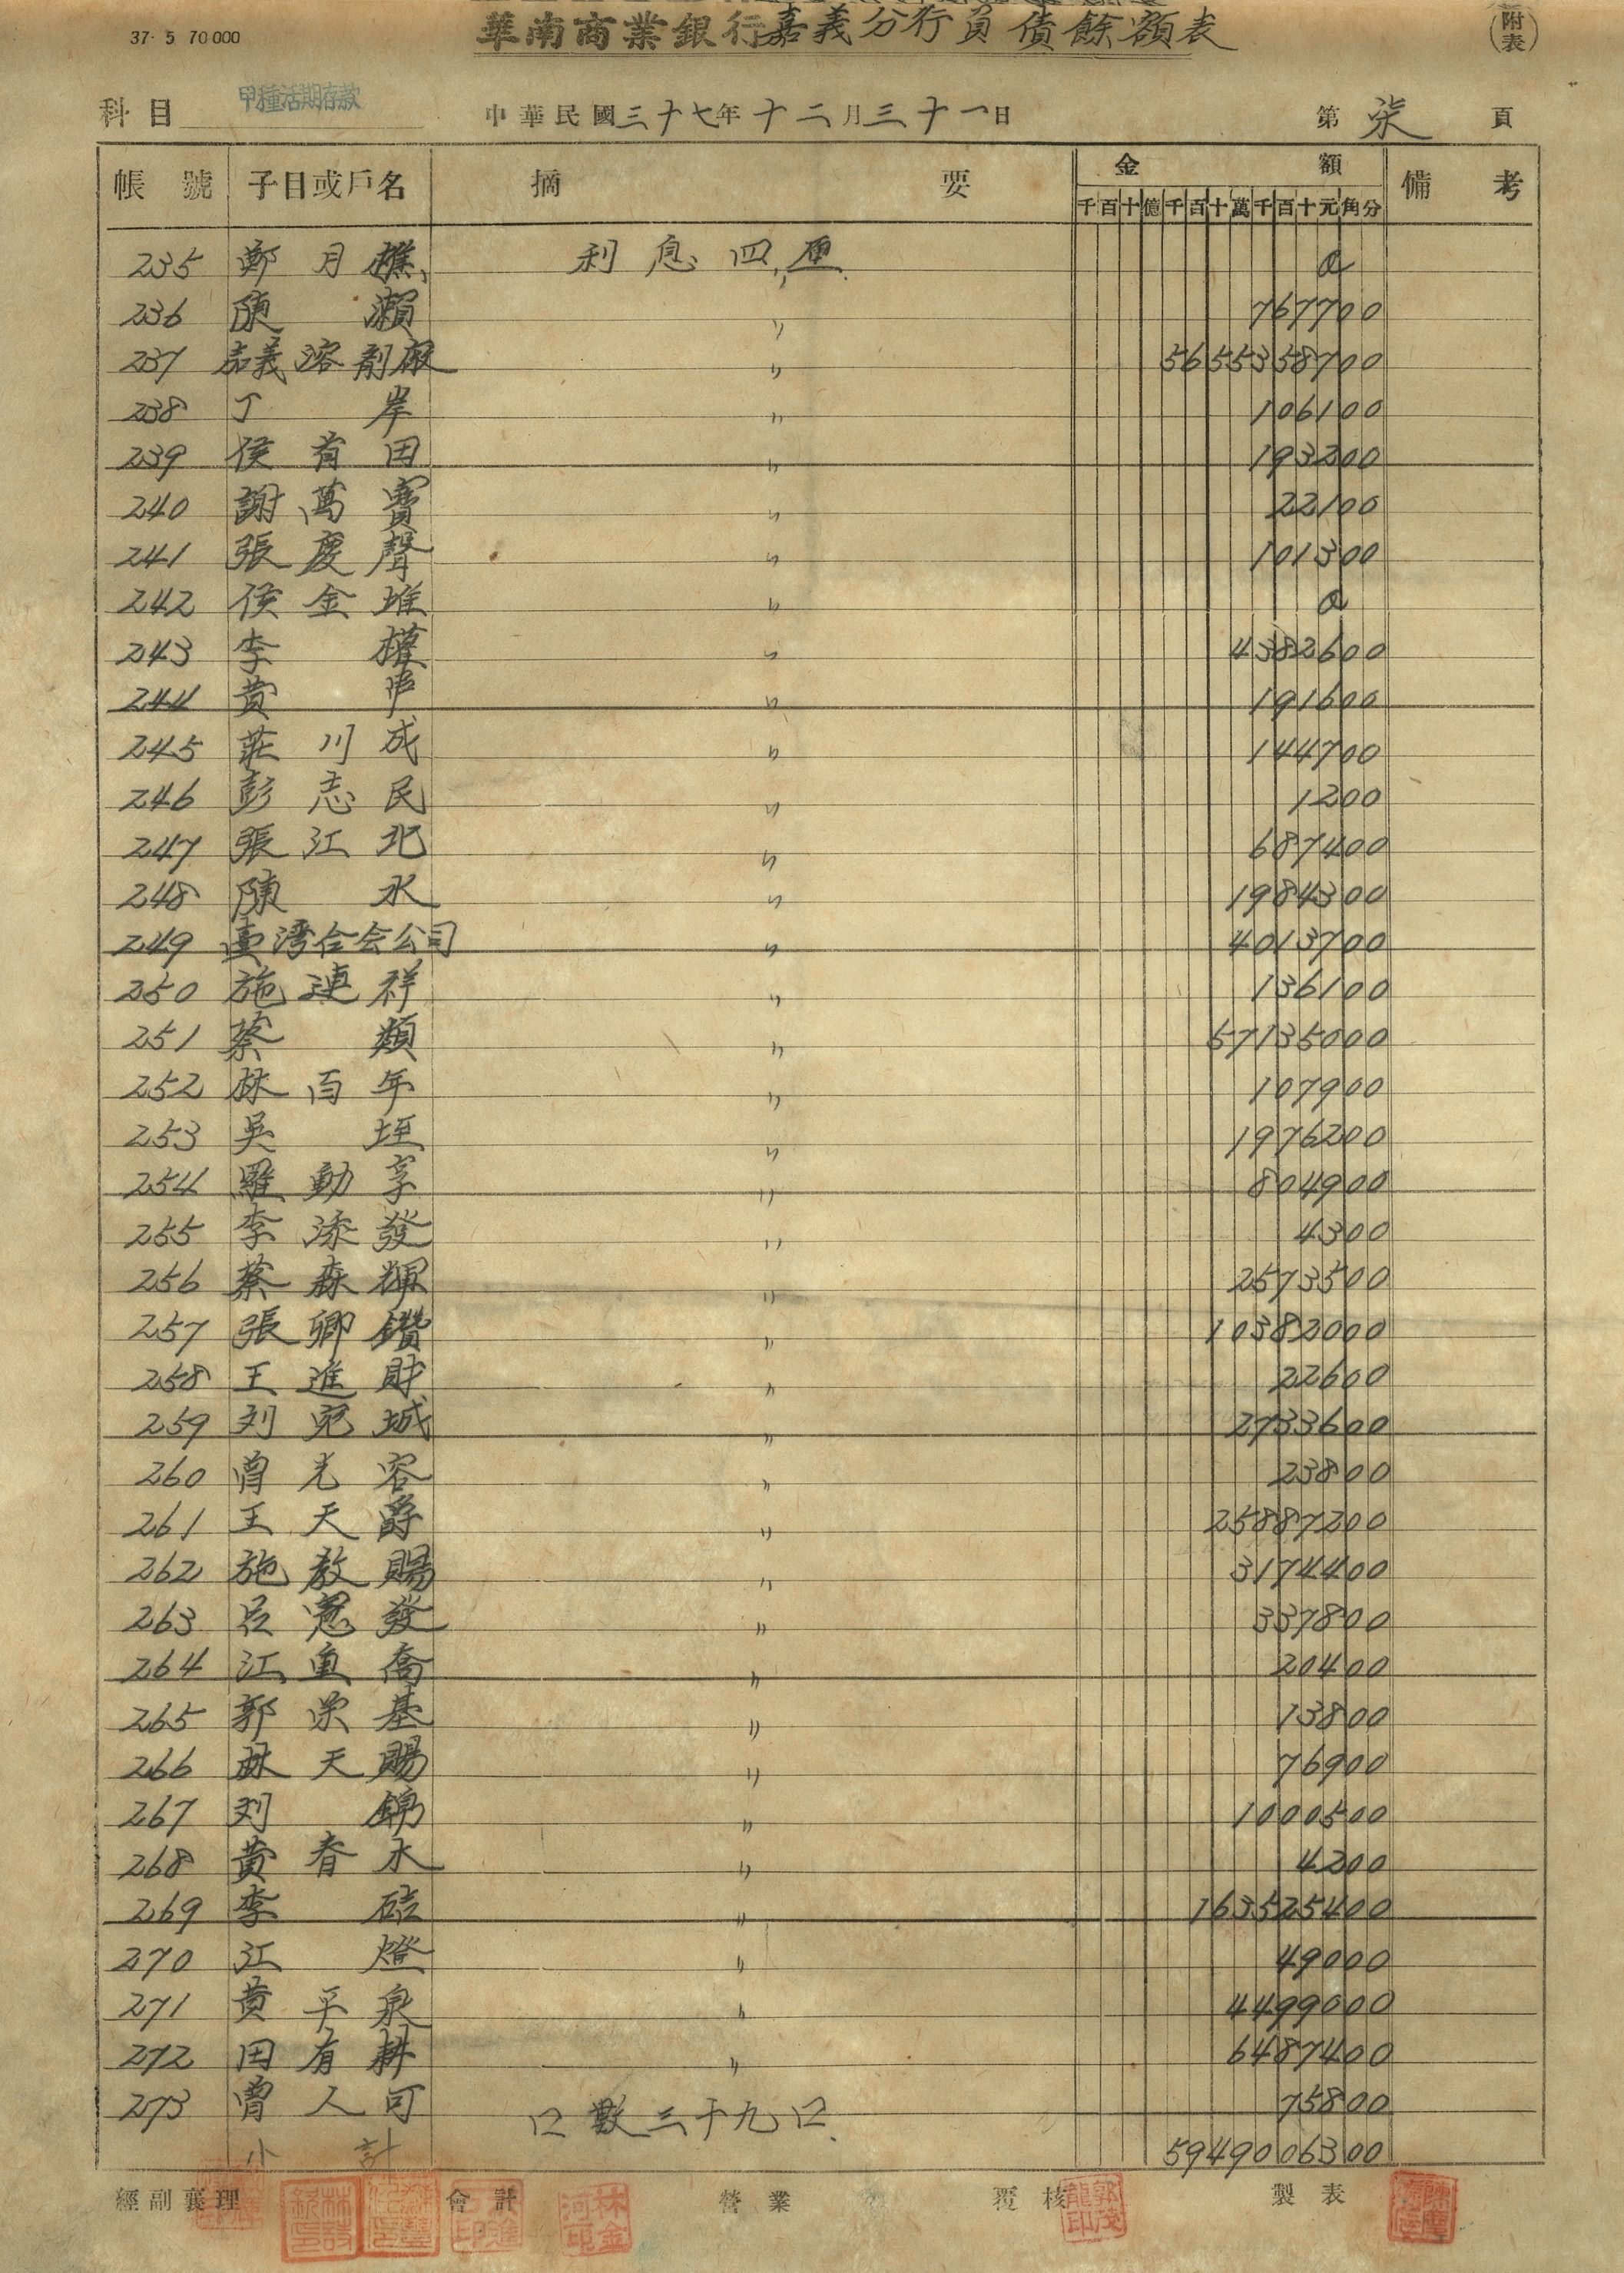 37· 5 70000
華南商業銀行嘉義分行負債餘額表
(附表)
科目 甲種活期存款 中華民國三十七年十二月三十一日 第柒頁
帳號 子目或戶名 摘要 金額 備考
千百十億千百十萬千百十元角分
235 鄭月樵 利息四厘 0
236 陳瀨 〃 767700
237 嘉義溶剤廠 〃 5655358700
238 丁岸 〃 106100
239 侯有田 〃 193200
240 謝萬寶 〃 22100
241 張慶聲 〃 101300
242 侯金堆 〃 0
243 李權 〃 4382600
244 黄 〃 191600
245 莊川成 〃 144700
246 彭志民 〃 1200
247 張江北 〃 687400
248 陳水 〃 1984300
249 臺湾合会公司 〃 4013700
250 施連祥 〃 136100
251 蔡類 〃 57135000
252 林百年 〃 107900
253 吳垤 〃 1976200
254 羅動享 〃 804900
255 李添發 〃 4300
256 蔡森輝 〃 2573500
257 張卿鑽 〃 10382000
258 王進財 〃 22600
259 刘宛城 〃 2733600
260 曾光容 〃 23800
261 王天爵 〃 25887200
262 施教賜 〃 3174400
263 呂寬發 〃 337800
264 江重喬 〃 20400
265 郭栄基 〃 13800
266 林天賜 〃 76900
267 刘錦 〃 1000500
268 黄春木 〃 4200
269 李硈 〃 163525400
270 江燈 〃 49000
271 黄平泉 〃 4499000
272 田有耕 〃 6487400
273 曾人可 口數三十九口 75800
小計 5949006300
經副襄理 會計 營業 覆核 製表
林金河印
郭茂龍印